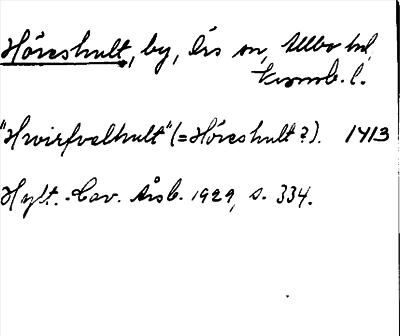 Höreshult, by, Ås sn, Allbo hd,
Kronob. l.
"Hwirfvelhult" (= Höreshult?). 1413
Hylt.-Cav. Årsb. 1929, s. 334.